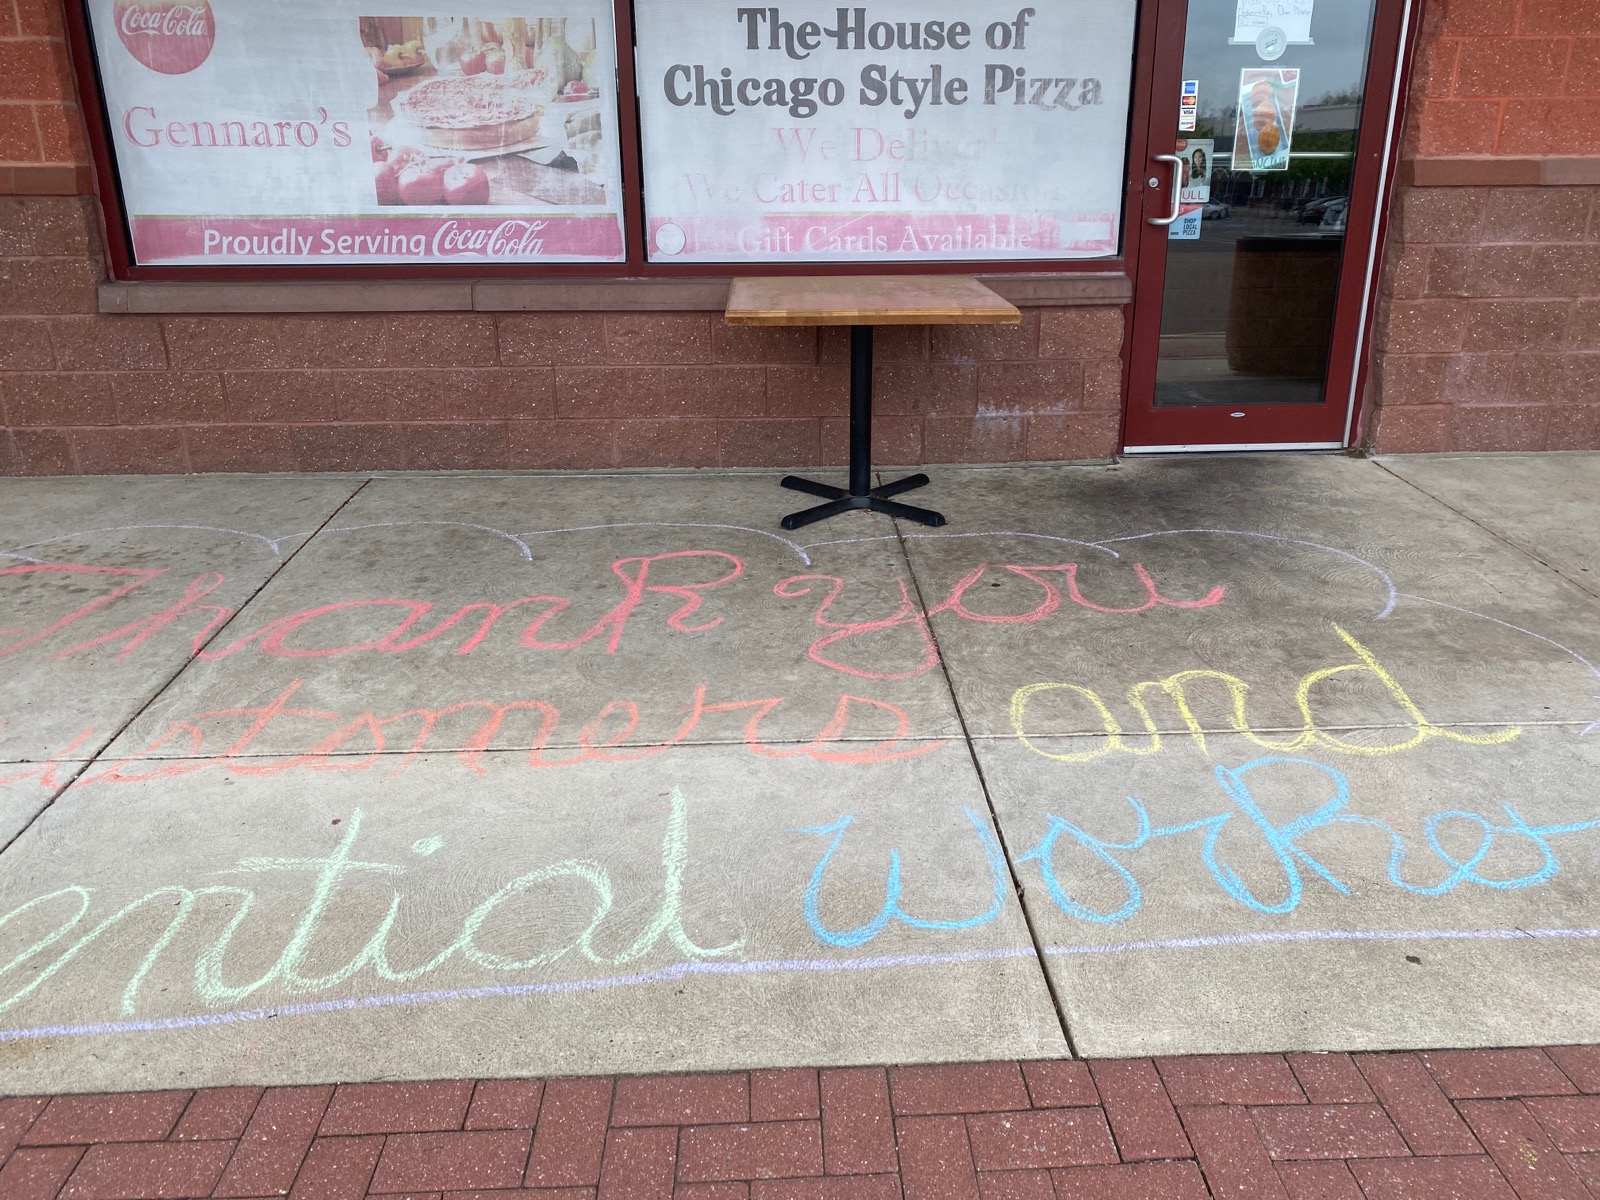 Coca-Cola
Gennaro's
Proudly Serving Coca-Cola
The House of
Chicago Style Pizza
We Deliver
We Cater All Occasion
Gift Cards Available
VISA
ULL
SHOP
LOCAL
PIZZA
Thank you
ustomers and
ential Worke